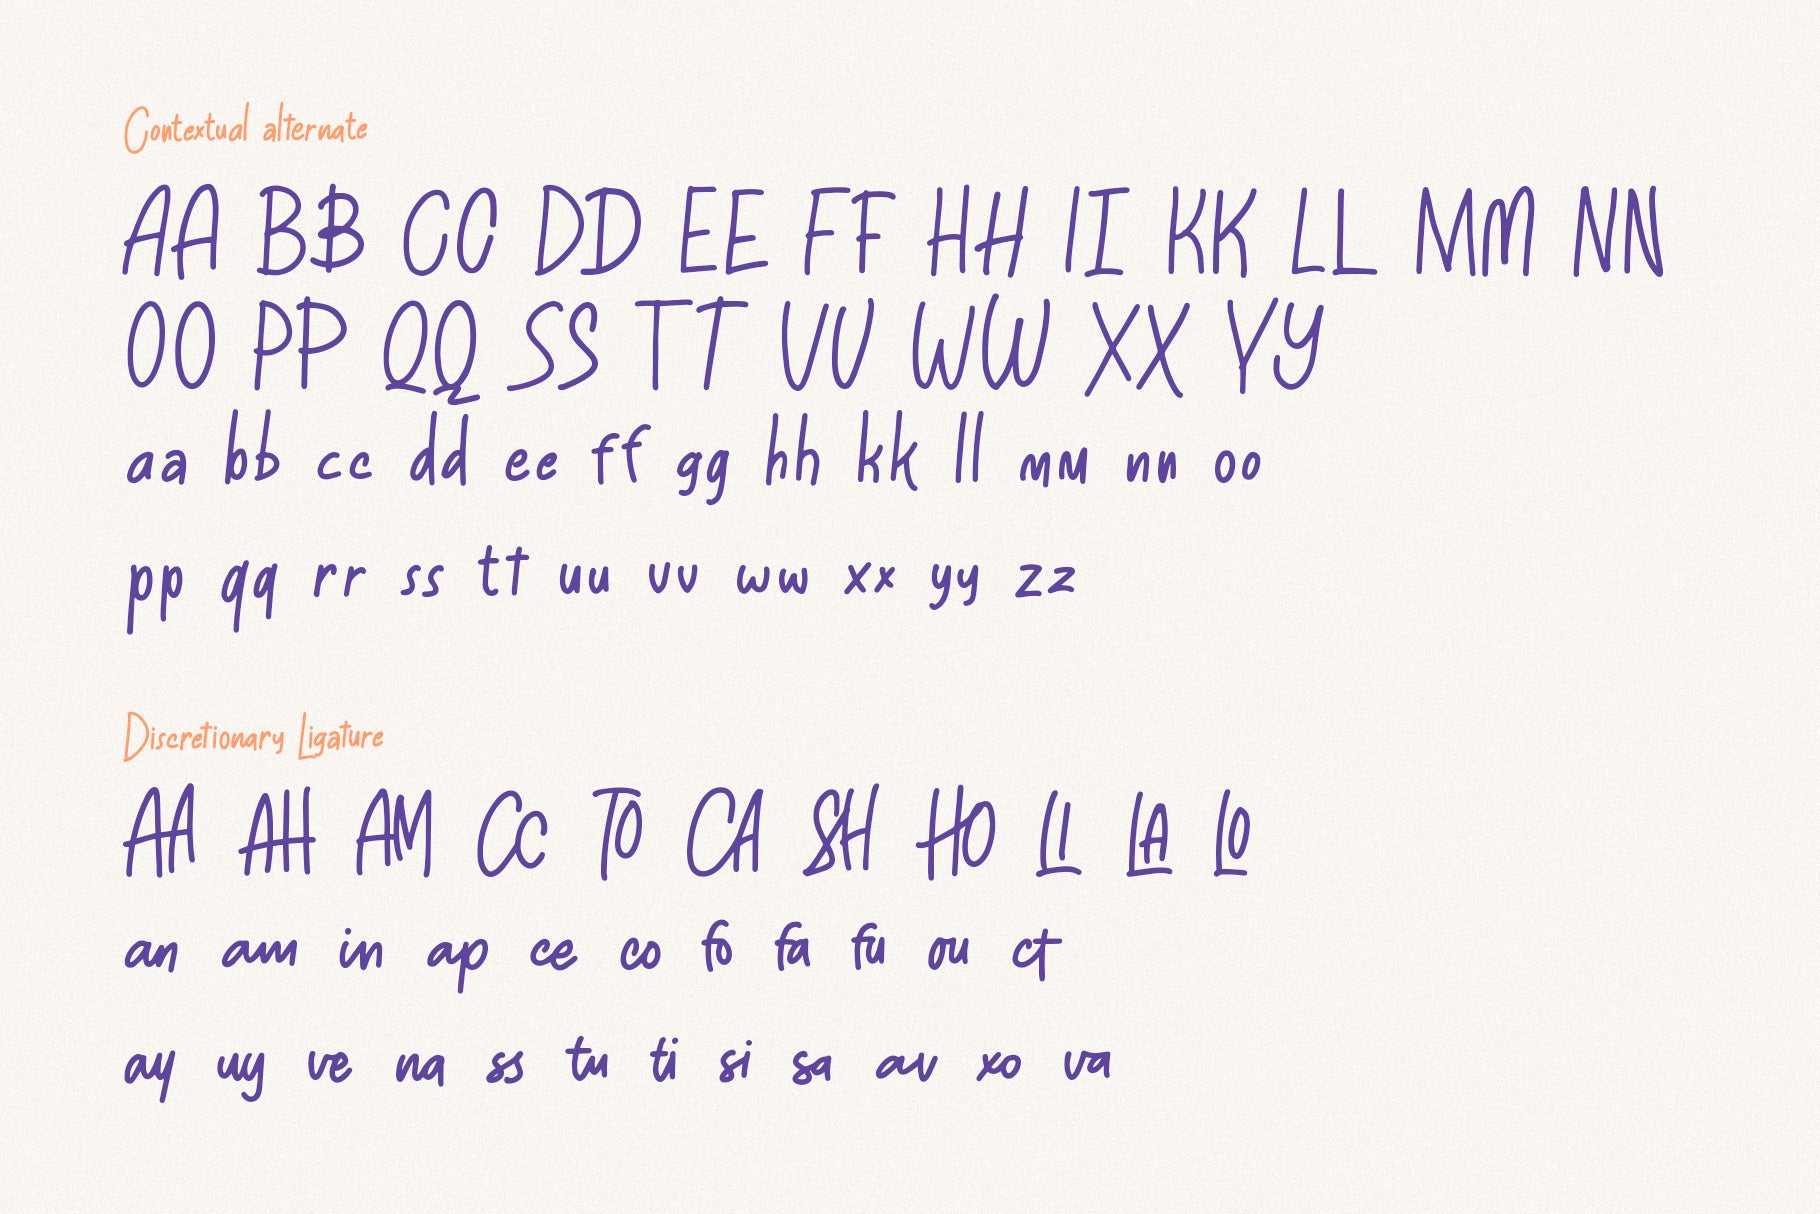 Contextual alternate
AA BB CC DD EE FF HH II KK LL MM NN
OO PP QQ SS TT UU WW XX YY
aa bb cc dd ee ff gg hh kk ll mm nn oo
pp qq rr ss tt uu vv ww xx yy zz
Discretionary Ligature
AA AH AM CC TO CA SH HO LI LA LO
an am in ap ce co fo fa fu ou ct
ay uy ve na ss tu ti si sa av xo va